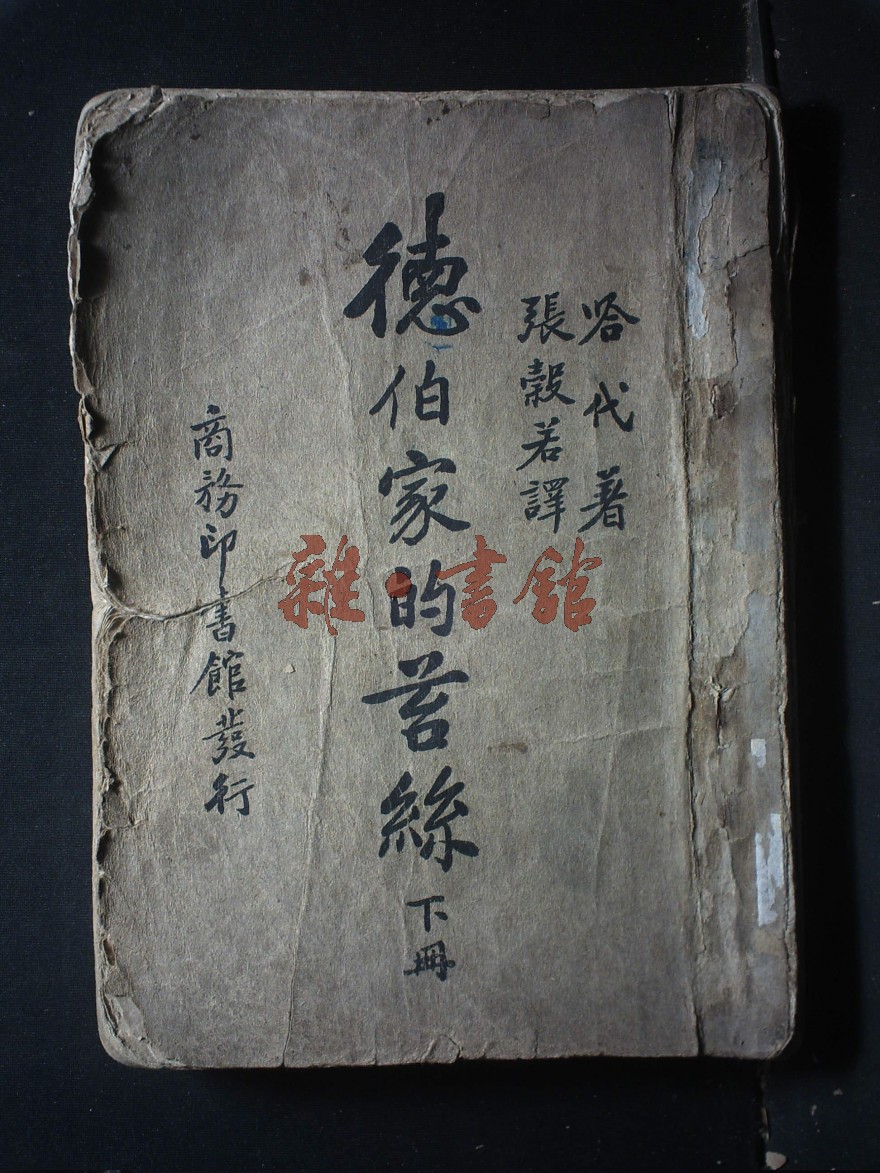 哈代著
張穀若譯
德伯家的苔絲
下冊
商務印書館發行
雜·書館